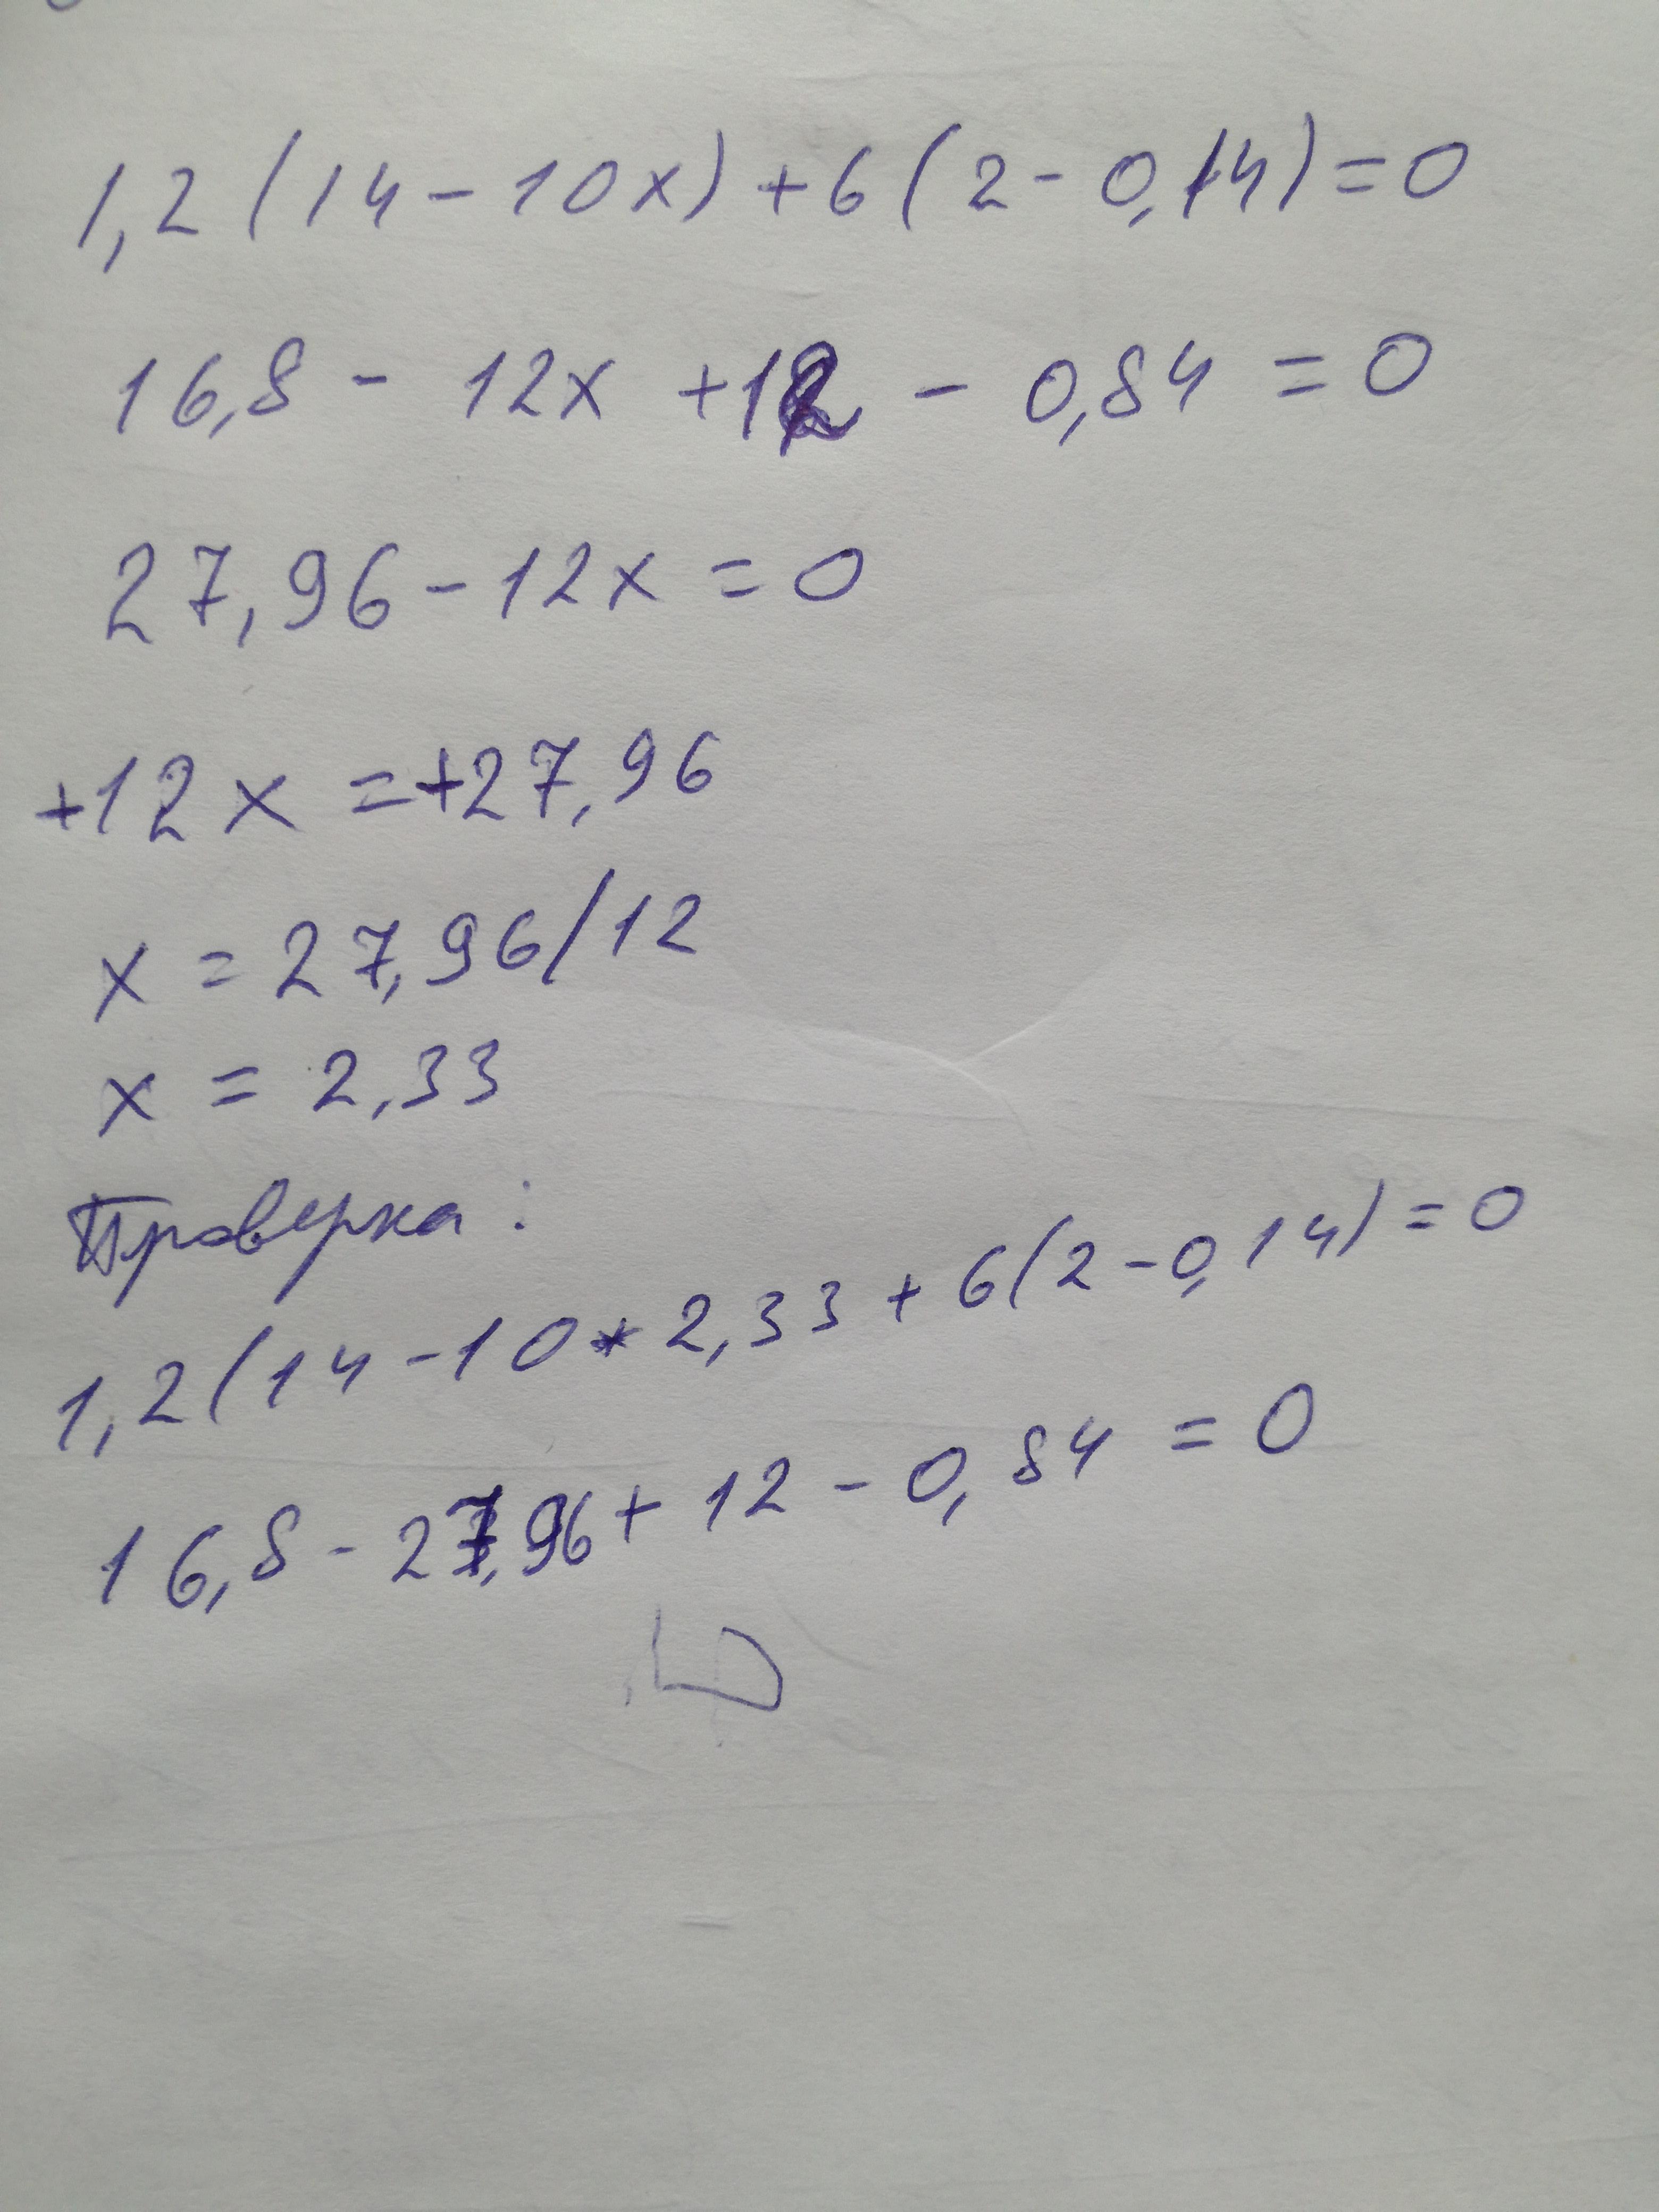 1,2(14-10x)+6(2-0,14)=0
16,8-12x+12-0,84=0
27,96-12x=0
+12x=+27,96
x=27,96/12
x=2,33
Проверка:
1,2(14-10*2,33+6(2-0,14)=0
16,8-27,96+12-0,84=0